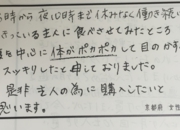 時から夜心時まで休みなく働き続い
きっている主人に食べさせてみたところ
を中心に体がポカポカして目のかす
スッキリしたと申しておりました。
是非主人の為に購入したいと
思います。
京都府 女性